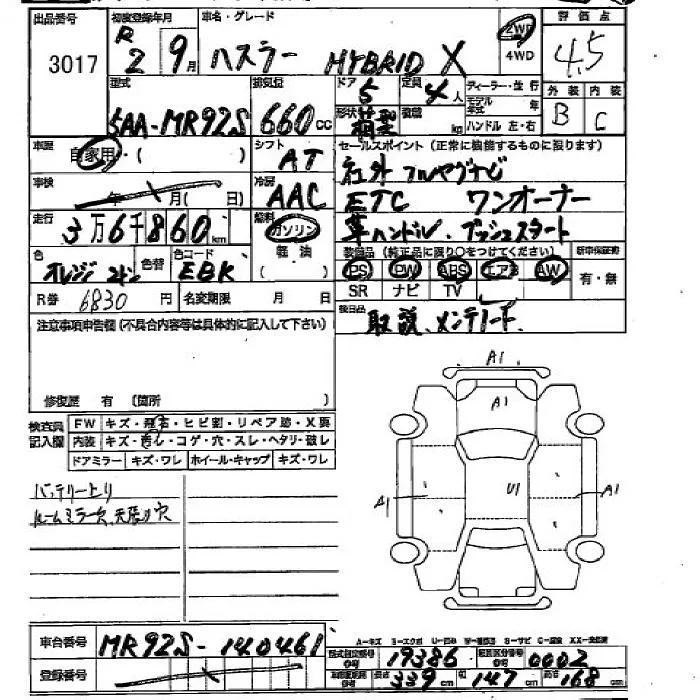 出品番号 初度登録年月 車名・グレード 評価点
3017 R 2 9月 ハスラー HYBRID X 2WD 4WD 4.5
型式 排気量 ドア 5 定員 4人 ディーラー・並行 外装 内装
5AA-MR92S 660cc 形状 箱型 積載 kg モデル年式 年 ハンドル 左・右 B C
車歴 自家用・( ) シフト AT セールスポイント (正常に機能するものに限ります)
社外フルセグナビ
車検 年 月( 日) 冷房 AAC ETC ワンオーナー
走行 3万6千860km 燃料 ガソリン 軽油 ( ) 革ハンドル、プッシュスタート
色 オレンジ 色替 色コード EBK
装備品 (純正品に限り○をつけてください) 新車保証書
PS PW ABS エアB AW 有・無
SR ナビ TV
R券 6830円 名変期限 月 日
後日品 取説、メンテノート
注意事項申告欄(不具合内容等は具体的に記入して下さい)
修復歴 有 (箇所 )
検査員記入欄 FW キズ・飛石・ヒビ割・リペア跡・X要
内装 キズ・汚れ・コゲ・穴・スレ・ヘタリ・破レ
ドアミラー キズ・ワレ ホイール・キャップ キズ・ワレ
バッテリー上り
ルームミラー欠、天張り穴
A1
A1
A1 U1 A1
A-キズ B-エクボ U-凹み W-補修跡 S-サビ C-腐食 XX-交換済
車台番号 MR92S-140461
型式指定番号 19386 類別区分番号 0002
登録番号
長さ 339cm 幅 147cm 高さ 168cm